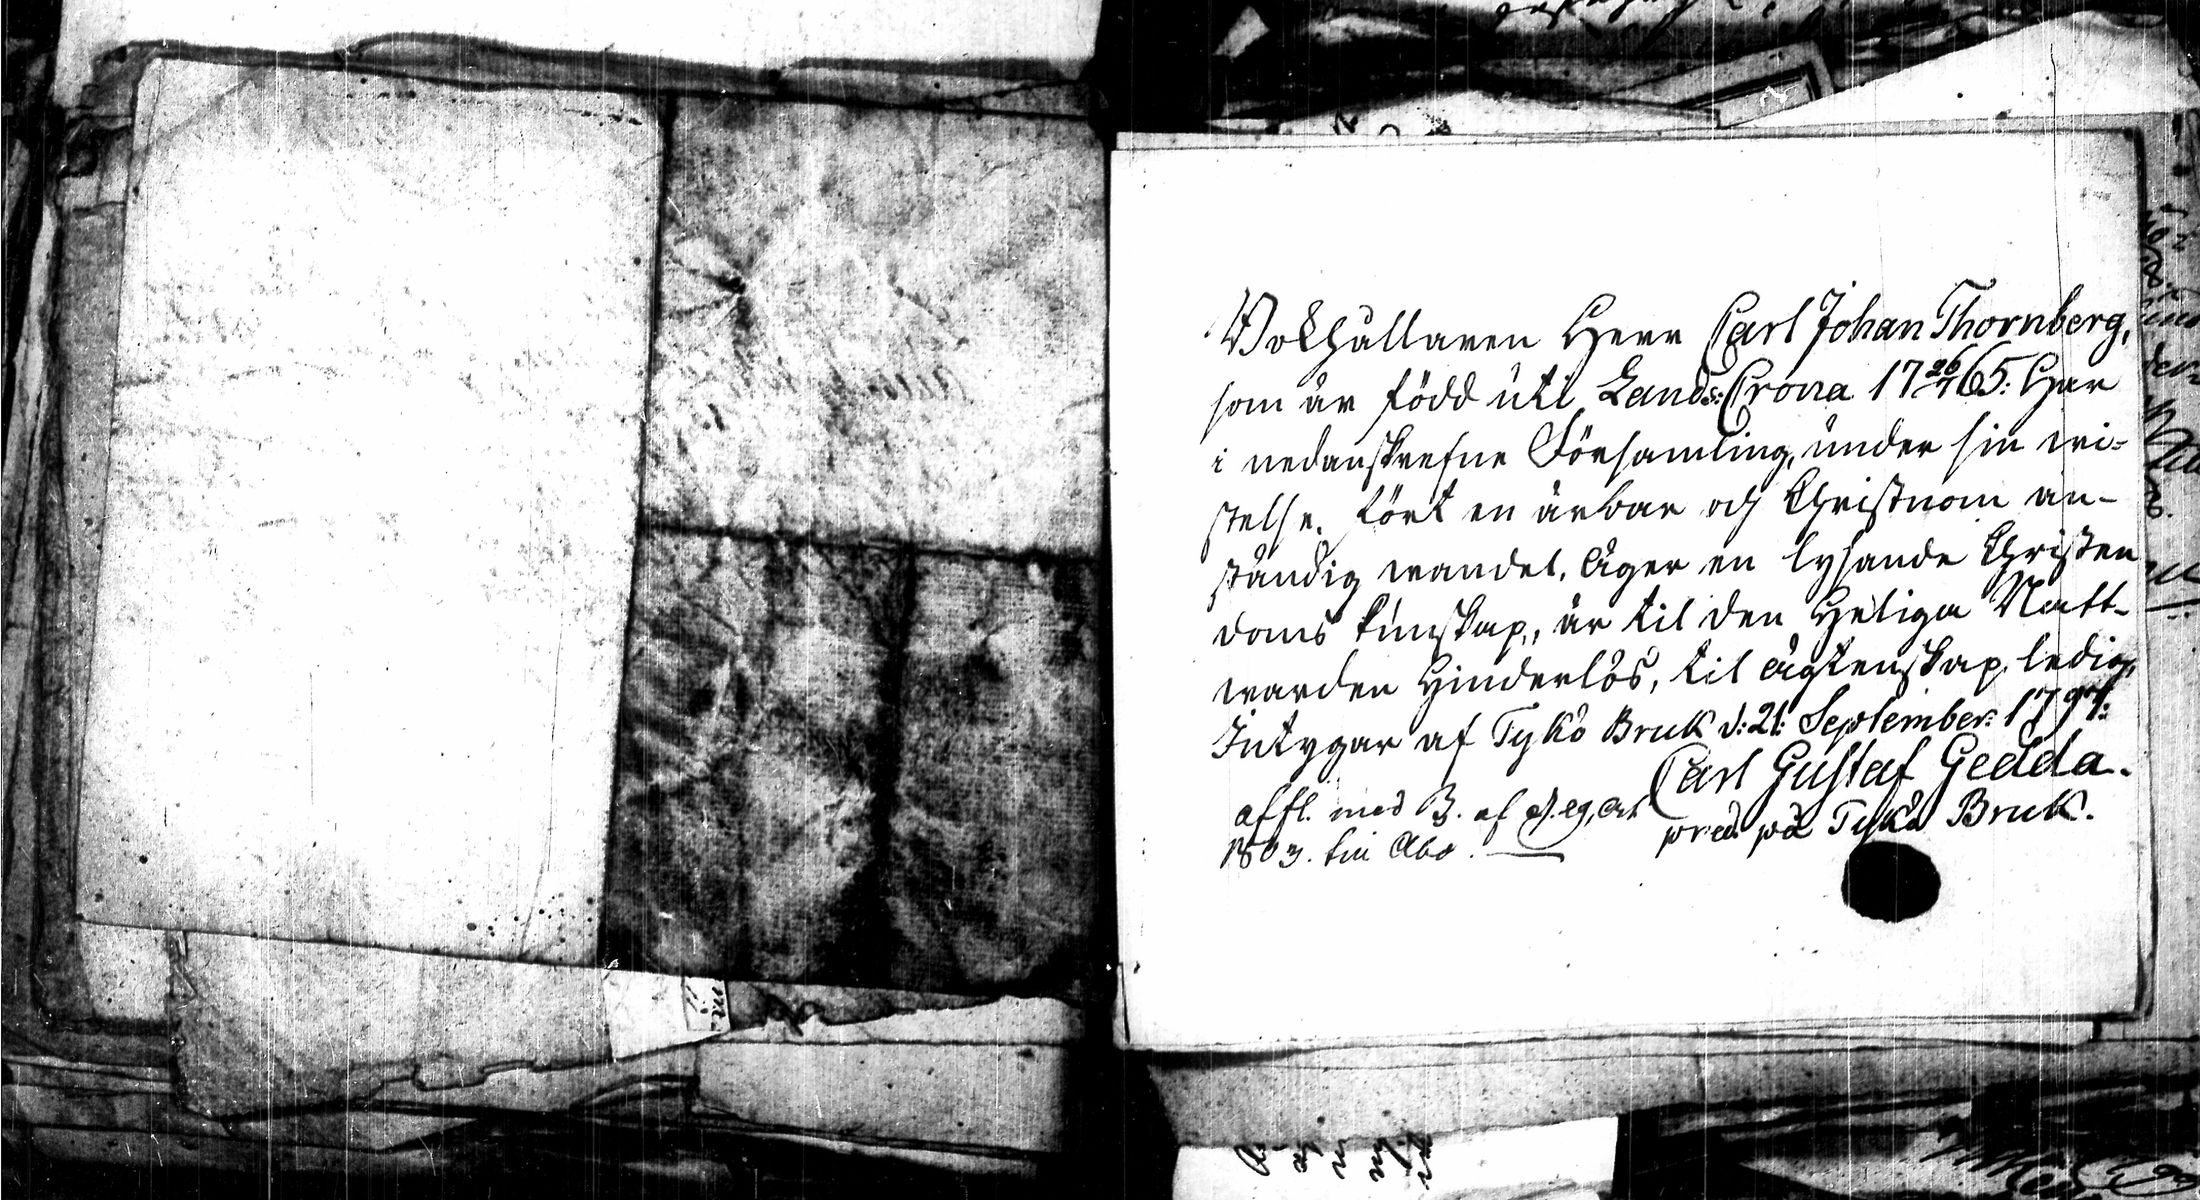 Bokhållaren Herr Carl Johan Thornberg,
som är född uti Lands:Crona 17 26/7 65: Har
i nedanskrefne Församling, under sin wi-
stelse, fört en ärbar och Christnom an-
ständig wandel, äger en lysande Christen
doms kunskap, är til den Heliga Natt-
warden Hinderlös, til ägtenskap ledig,
Intygar af Tykö Bruk d: 21: September: 1797:
Carl Gustaf Gedda.
pred. på Tykö Bruk.
affl. med B. af
1803. till Åbo.